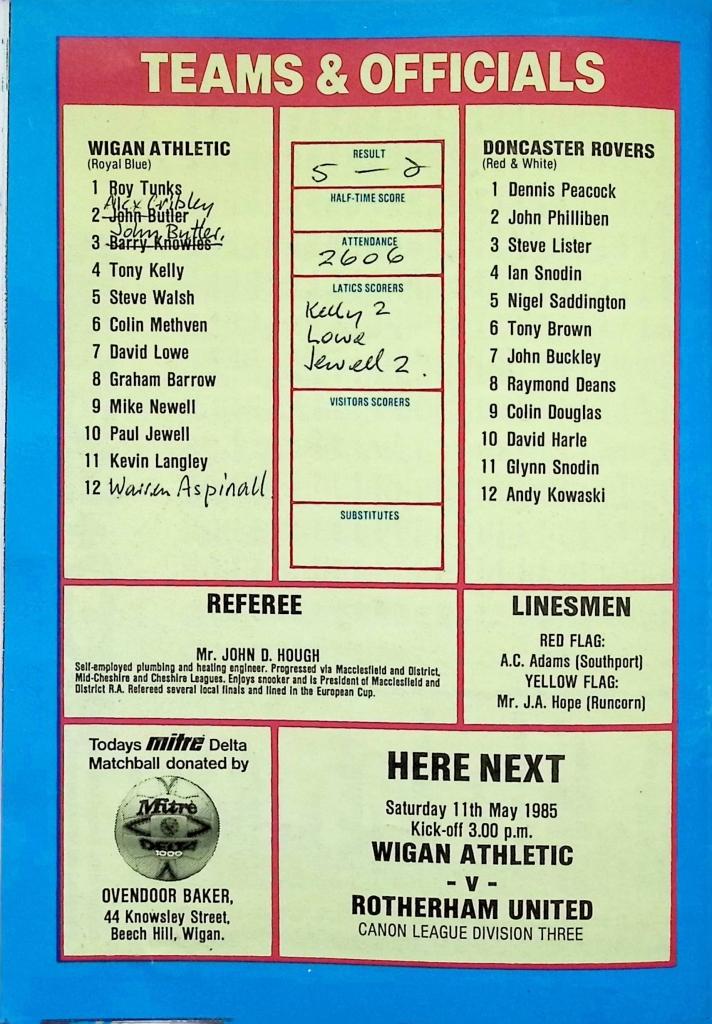 TEAMS & OFFICIALS
WIGAN ATHLETIC
(Royal Blue)
1 Roy Tunks
Alex Cribley
2 John Butler
John Butler.
3 Barry Knowles
4 Tony Kelly
5 Steve Walsh
6 Colin Methven
7 David Lowe
8 Graham Barrow
9 Mike Newell
10 Paul Jewell
11 Kevin Langley
12 Warren Aspinall
RESULT
5 - 2
HALF-TIME SCORE
ATTENDANCE
2606
LATICS SCORERS
Kelly 2
Lowe
Jewell 2.
VISITORS SCORERS
SUBSTITUTES
DONCASTER ROVERS
(Red & White)
1 Dennis Peacock
2 John Philliben
3 Steve Lister
4 Ian Snodin
5 Nigel Saddington
6 Tony Brown
7 John Buckley
8 Raymond Deans
9 Colin Douglas
10 David Harle
11 Glynn Snodin
12 Andy Kowaski
REFEREE
Mr. JOHN D. HOUGH
Self-employed plumbing and heating engineer. Progressed via Macclesfield and District,
Mid-Cheshire and Cheshire Leagues. Enjoys snooker and is President of Macclesfield and
District R.A. Refereed several local finals and lined in the European Cup.
LINESMEN
RED FLAG:
A.C. Adams (Southport)
YELLOW FLAG:
Mr. J.A. Hope (Runcorn)
Todays mitre Delta
Matchball donated by
Mitre
DELTA
1000
OVENDOOR BAKER,
44 Knowsley Street,
Beech Hill, Wigan.
HERE NEXT
Saturday 11th May 1985
Kick-off 3.00 p.m.
WIGAN ATHLETIC
- V -
ROTHERHAM UNITED
CANON LEAGUE DIVISION THREE